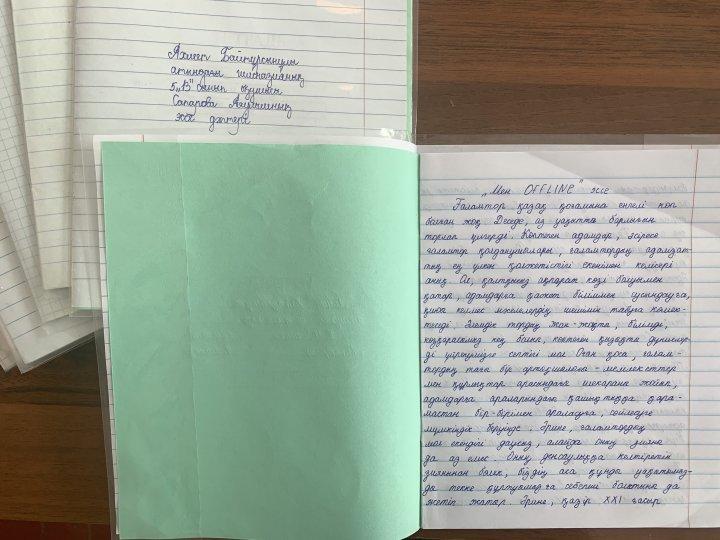 Ахмет Байтұрсынұлы
атындағы гимназияның
5 "В" сынып оқушысы
Сапарова
эссе дәптері
"Мен OFFLINE" эссе
Ғаламтор қазақ қоғамына енгелі көп
болған жоқ. Десе де, аз уақытта барлығын
торлап үлгерді. Көптеген адамдар, әсіресе
ғаламтор қолданушылары, ғаламтордың адамзат-
тың ең үлкен қолжетістігі екенімен келісері
анық. Ол, қалтқысыз ақпарат көзі болуымен
қатар, адамдарға қажет біліммен сусындауға,
қиын келмес мәселелердің шешімін табуға көмек-
теседі. Әлемдік тордың жан-жақты, білімді,
көзқарасымыз кең болып, көптеген қызықты дүниелер-
ді үйренуімізге септігі мол. Оған қоса, ғалам-
тордың тағы бір артықшылығы - мемлекеттер
мен құрлықтар арасындағы шекараны жойып,
адамдарға араларындағы қашықтыққа қара-
мастан бір-бірімен араласуға, сөйлесуге
мүмкіндік беруінде. Әрине, ғаламтордың
мол екендігі даусыз, алайда оның зияны
да аз емес. Оның денсаулыққа келтіретін
зиянынан бөлек, біздің аса құнды уақытымыз-
ды текке құртуымызға себепші болатыны да
жетіп жатыр. Әрине, қазір XXI ғасыр